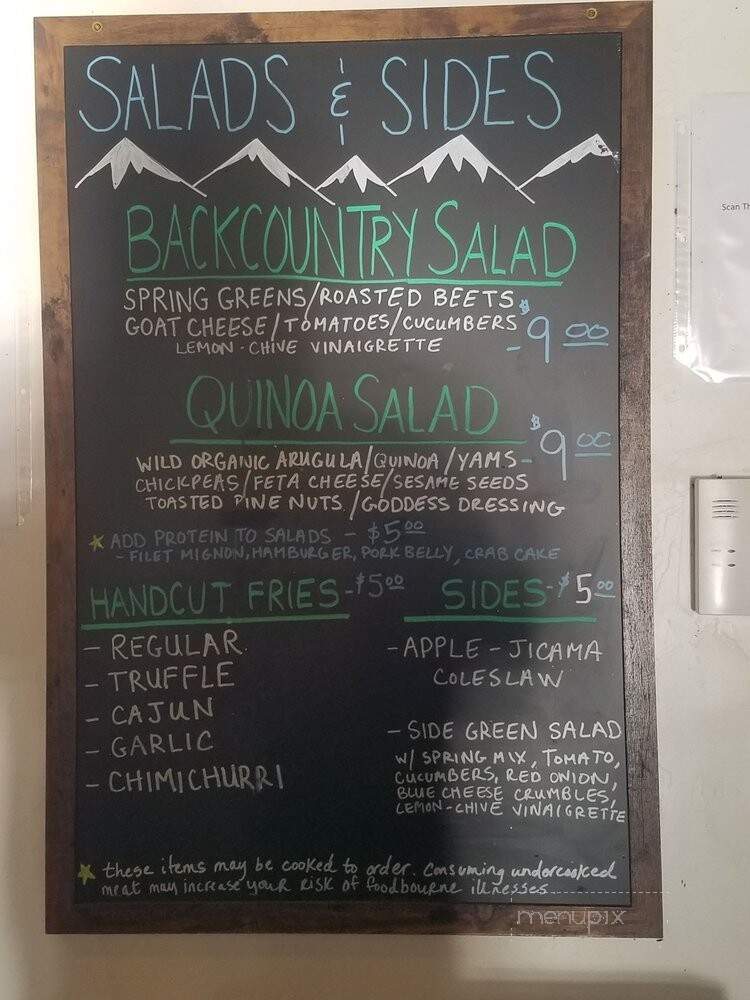 SALADS & SIDES
BACKCOUNTRY SALAD
SPRING GREENS/ROASTED BEETS
GOAT CHEESE/TOMATOES/CUCUMBERS
LEMON-CHIVE VINAIGRETTE
- $9.00
QUINOA SALAD
WILD ORGANIC ARUGULA/QUINOA/YAMS - $9.00
CHICKPEAS/FETA CHEESE/SESAME SEEDS
TOASTED PINE NUTS/GODDESS DRESSING
★ ADD PROTEIN TO SALADS - $5.00
- FILET MIGNON, HAMBURGER, PORK BELLY, CRAB CAKE
HANDCUT FRIES - $5.00
- REGULAR
- TRUFFLE
- CAJUN
- GARLIC
- CHIMICHURRI
SIDES - $5.00
- APPLE - JICAMA
COLESLAW
- SIDE GREEN SALAD
W/ SPRING MIX, TOMATO,
CUCUMBERS, RED ONION,
BLUE CHEESE CRUMBLES,
LEMON-CHIVE VINAIGRETTE
★ these items may be cooked to order. Consuming undercooked
meat may increase your risk of foodbourne illnesses
menupix
Scan Th